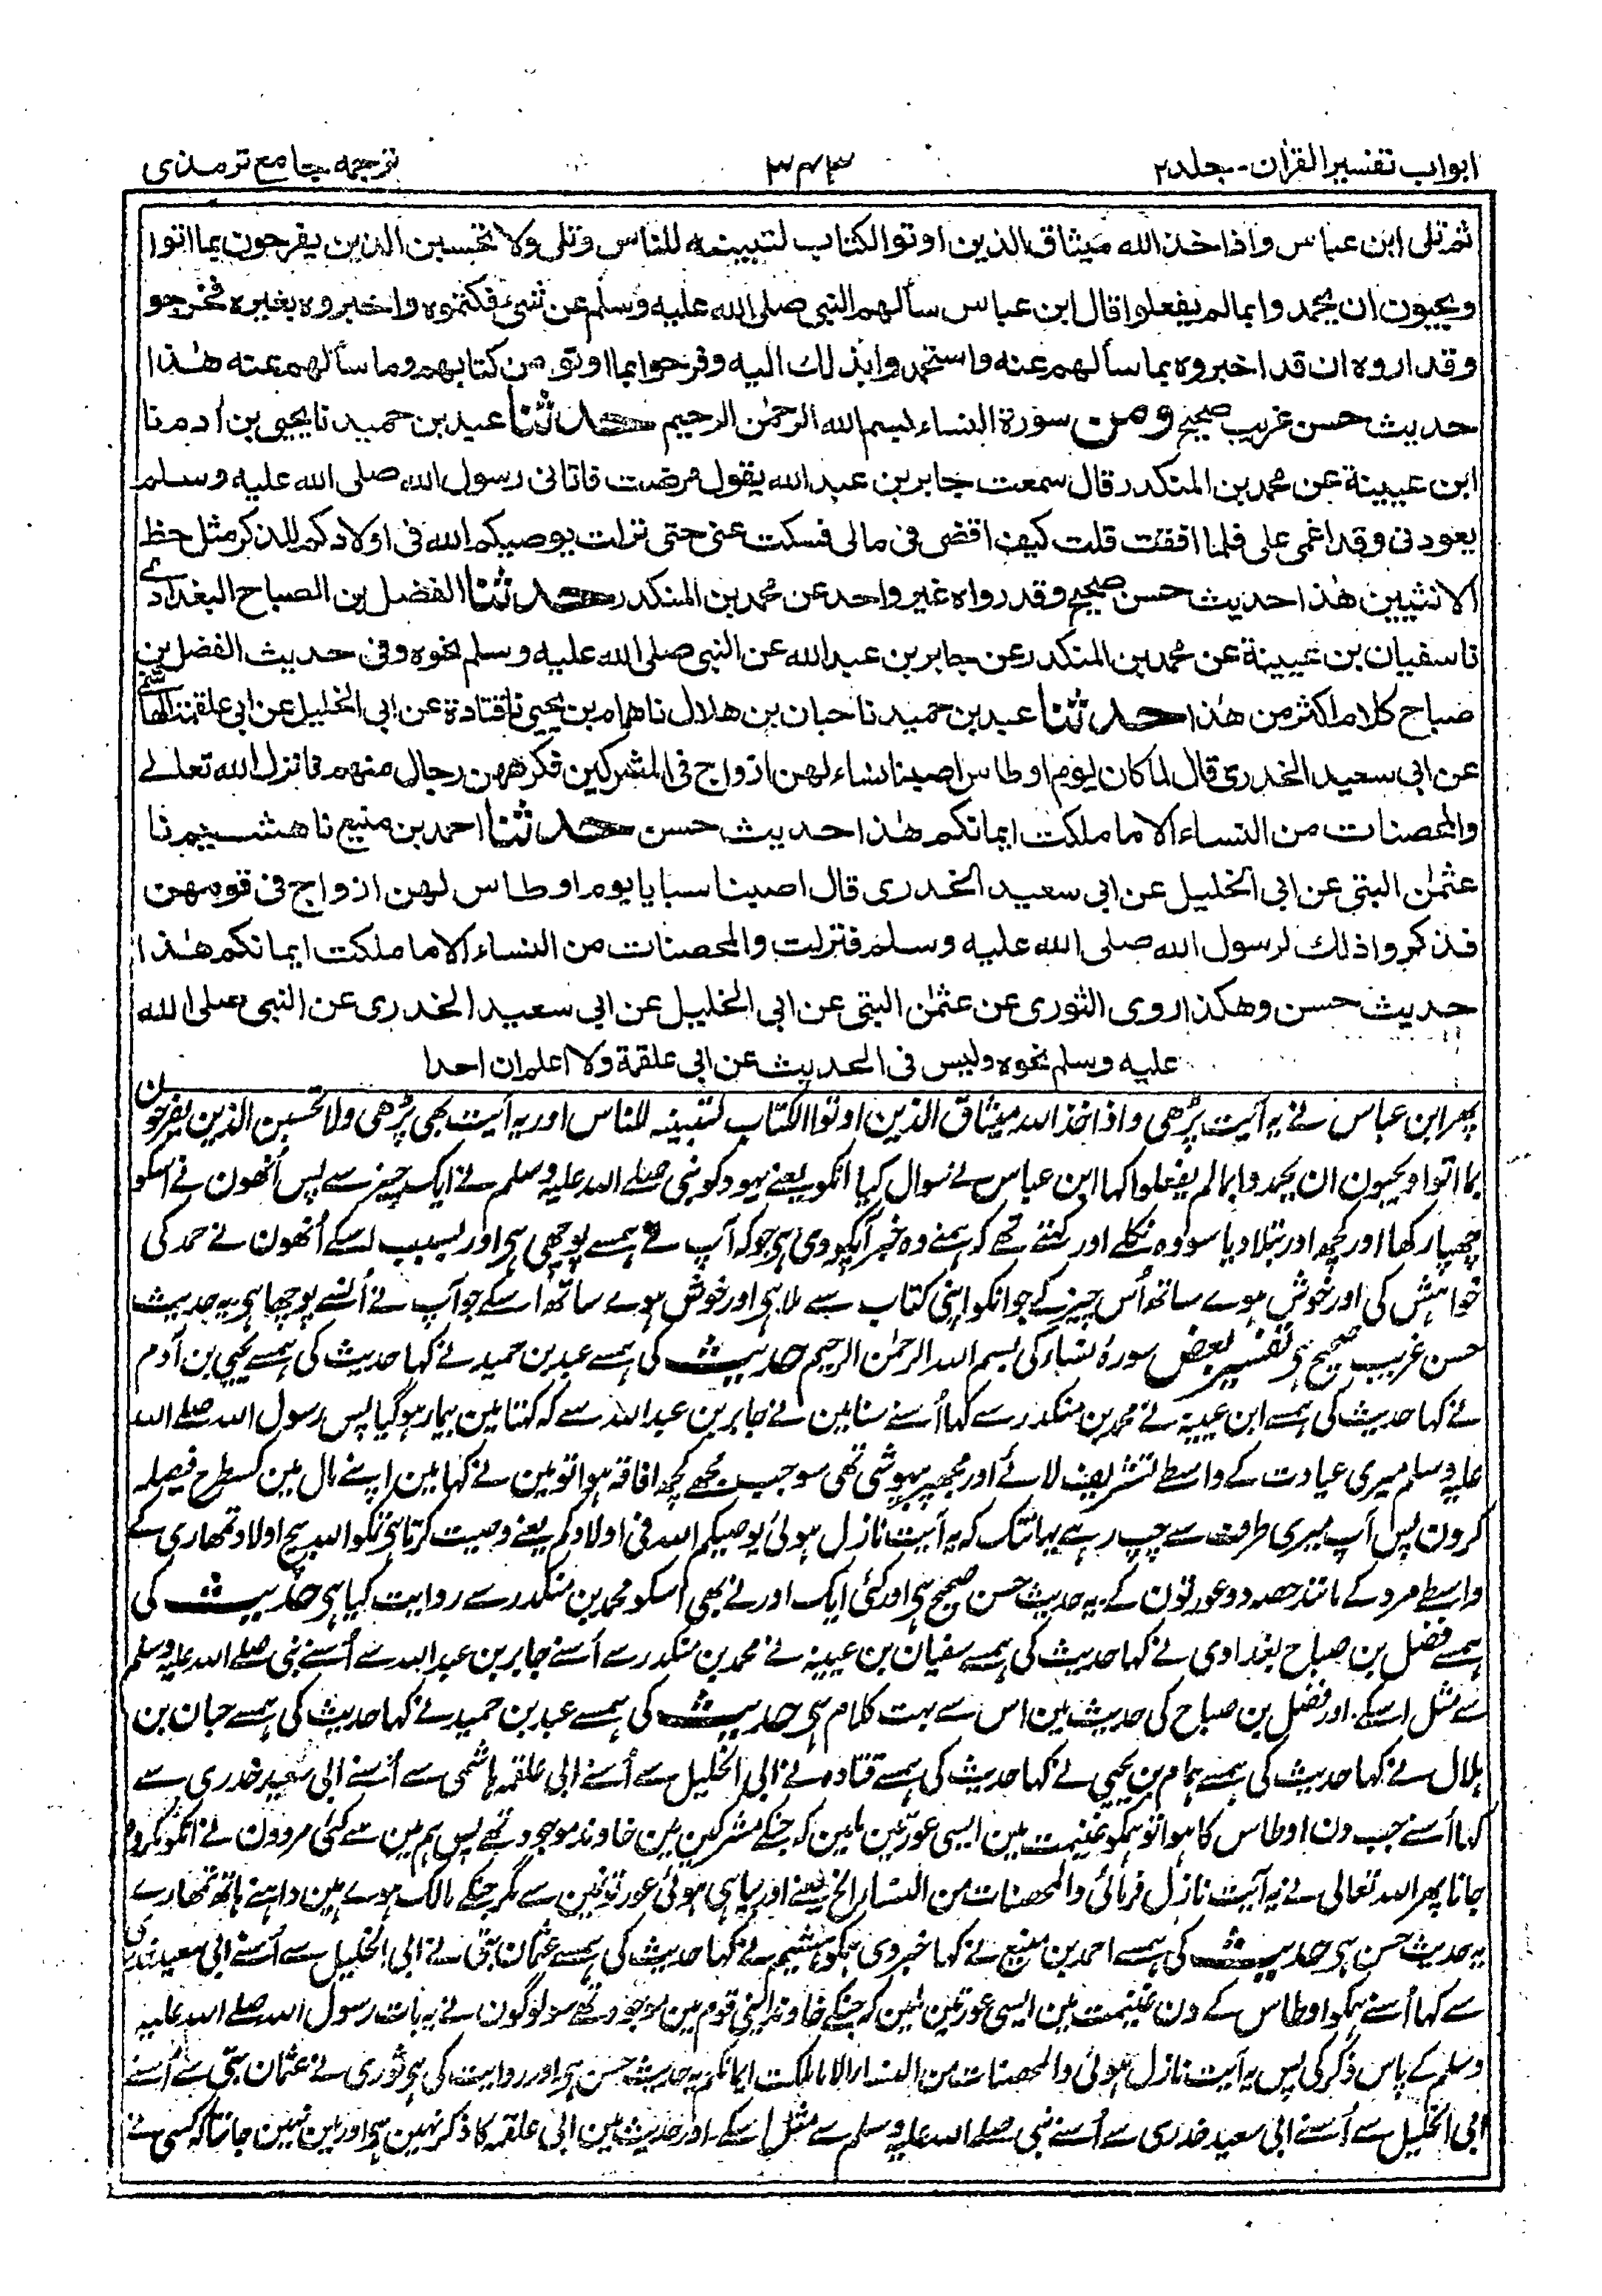 ابواب تفسیر القرآن - جلد ۲
۳۴۳
ترجمہ جامع ترمذی
ثم تلی ابن عباس واذا خذ الله میثاق الذین اوتوا الکتاب لتبیننه للناس وتلی ولا تحسبن الذین یفرحون بما اتوا
ویحبون ان یحمدوا بما لم یفعلوا قال ابن عباس سألهم النبی صلی الله علیه وسلم عن شیء فکتموه واخبروه بغیره فخرجو
وقد اروه ان قد اخبروه بما سألهم عنه واستحمدوا بذلك الیه وفرحوا بما اوتو من کتابهم وما سألهم عنه هٰذا
حدیث حسن غریب صحیح ومن سورة النساء بسم الله الرحمٰن الرحیم حدثنا عبد بن حمید نا یحیی بن اٰدم نا
ابن عیینة عن محمد بن المنکدر قال سمعت جابر بن عبد الله یقول مرضت فاتانی رسول الله صلی الله علیه وسلم
یعودنی وقد اغمی علی فلما افقت قلت کیف اقضی فی مالی فسکت عنی حتی نزلت یوصیکم الله فی اولادکم للذکر مثل حظ
الانثیین هٰذا حدیث حسن صحیح وقد رواه غیر واحد عن محمد بن المنکدر حدثنا الفضل بن الصباح البغدادی
نا سفیان بن عیینة عن محمد بن المنکدر عن جابر بن عبد الله عن النبی صلی الله علیه وسلم نحوه وفی حدیث الفضل بن
صباح کلام اکثر من هٰذا حدثنا عبد بن حمید نا حبان بن هلال نا همام بن یحیی نا قتادة عن ابی الخلیل عن ابی علقمة الهاشمی
عن ابی سعید الخدری قال لما کان یوم اوطاس اصبنا نساء لهن ازواج فی المشرکین فکرههن رجال منهم فانزل الله تعالے
والمحصنات من النساء الا ما ملکت ایمانکم هٰذا حدیث حسن حدثنا احمد بن منیع نا هشیم نا
عثمٰن البتی عن ابی الخلیل عن ابی سعید الخدری قال اصبنا سبایا یوم اوطاس لهن ازواج فی قومهن
فذکروا ذلك لرسول الله صلی الله علیه وسلم فنزلت والمحصنات من النساء الا ما ملکت ایمانکم هٰذا
حدیث حسن وهکذا روی الثوری عن عثمٰن البتی عن ابی الخلیل عن ابی سعید الخدری عن النبی صلی الله
علیه وسلم نحوه ولیس فی الحدیث عن ابی علقمة ولا اعلم ان احدا
پھر ابن عباس نے یہ آیت پڑھی واذا خذ اللہ میثاق الذین اوتوا الکتاب لتبیننہ للناس اور یہ آیت بھی پڑھی ولا تحسبن الذین یفرحون
بما اتوا ویحبون ان یحمدوا بما لم یفعلوا کہا ابن عباس نے سوال کیا انکو یعنے یہود کو نبی صلے اللہ علیہ وسلم نے ایک چیز سے پس اُنھون نے اسکو
چھپا رکھا اور کچھ اور بتلا دیا سو وہ نکلے اور کہتے تھے کہ ہمنے وہ خبر آپکو دی ہی جو کہ آپ نے ہمسے پوچھی ہی اور بسبب اسکے اُنھون نے حمد کی
خواہش کی اور خوش ہوے ساتھ اُس چیز کے جو انکو اپنی کتاب سے ملا ہی اور خوش ہوے ساتھ اسکے جو آپ نے اُنسے پوچھا ہی یہ حدیث
حسن غریب صحیح ہی تفسیر بعض سورۂ نساء کی بسم اللہ الرحمٰن الرحیم حدیث کی ہمسے عبد بن حمید نے کہا حدیث کی ہمسے یحیی بن آدم
نے کہا حدیث کی ہمسے ابن عیینہ نے محمد بن منکدر سے کہا اُسنے سنا مین نے جابر بن عبد اللہ سے کہ کہتا مین بیمار ہو گیا پس رسول اللہ صلے اللہ
علیہ وسلم میری عیادت کے واسطے تشریف لائے اور مجھپر بیہوشی تھی سو جب مجھے کچھ افاقہ ہوا تو مین نے کہا مین اپنے مال مین کسطرح فیصلہ
کرون پس آپ میری طرف سے چپ رہے یہانتک کہ یہ آیت نازل ہوئی یوصیکم اللہ فی اولادکم یعنے وصیت کرتا ہی تمکو اللہ بیچ اولاد تمھاری کے
واسطے مرد کے مانند حصہ دو عورتون کے۔ یہ حدیث حسن صحیح ہی اور کئی ایک اور نے بھی اسکو محمد بن منکدر سے روایت کیا ہی حدیث کی
ہمسے فضل بن صباح بغدادی نے کہا حدیث کی ہمسے سفیان بن عیینہ نے محمد بن منکدر سے اُسنے جابر بن عبد اللہ سے اُسنے نبی صلے اللہ علیہ وسلم
سے مثل اسکے۔ اور فضل بن صباح کی حدیث مین اس سے بہت کلام ہی حدیث کی ہمسے عبد بن حمید نے کہا حدیث کی ہمسے حبان بن
ہلال نے کہا حدیث کی ہمسے ہمام بن یحیی نے کہا حدیث کی ہمسے قتادہ نے ابی الخلیل سے اُسنے ابی علقمہ ہاشمی سے اُسنے ابی سعید خدری سے
کہا اُسنے جب دن اوطاس کا ہوا تو ہمکو غنیمت مین ایسی عورتین ملین کہ جنکے مشرکین مین خاوند موجود تھے پس ہم مین سے کئی مردون نے انکو مکروہ
جانا پھر اللہ تعالی نے یہ آیت نازل فرمائی والمحصنات من النساء الخ یعنے اور بیاہی ہوئی عورتونمین سے مگر جنکے مالک ہوے ہین داہنے ہاتھ تمھارے
یہ حدیث حسن ہی حدیث کی ہمسے احمد بن منیع نے کہا خبر دی ہمکو ہشیم نے کہا حدیث کی ہمسے عثمان بتی نے ابی الخلیل سے اُسنے ابی سعید خدری
سے کہا اُسنے ہمکو اوطاس کے دن غنیمت مین ایسی عورتین ملین کہ جنکے خاوند اپنی قوم مین موجود تھے سو لوگون نے یہ بات رسول اللہ صلے اللہ علیہ
وسلم کے پاس ذکر کی پس یہ آیت نازل ہوئی والمحصنات من النساء الا ما ملکت ایمانکم یہ حدیث حسن ہی اور روایت کی ہی ثوری نے عثمان بتی سے اُسنے
ابی الخلیل سے اُسنے ابی سعید خدری سے اُسنے نبی صلے اللہ علیہ وسلم سے مثل اسکے۔ اور حدیث مین ابی علقمہ کا ذکر نہین ہی اور مین نہین جانتا کہ کسی نے